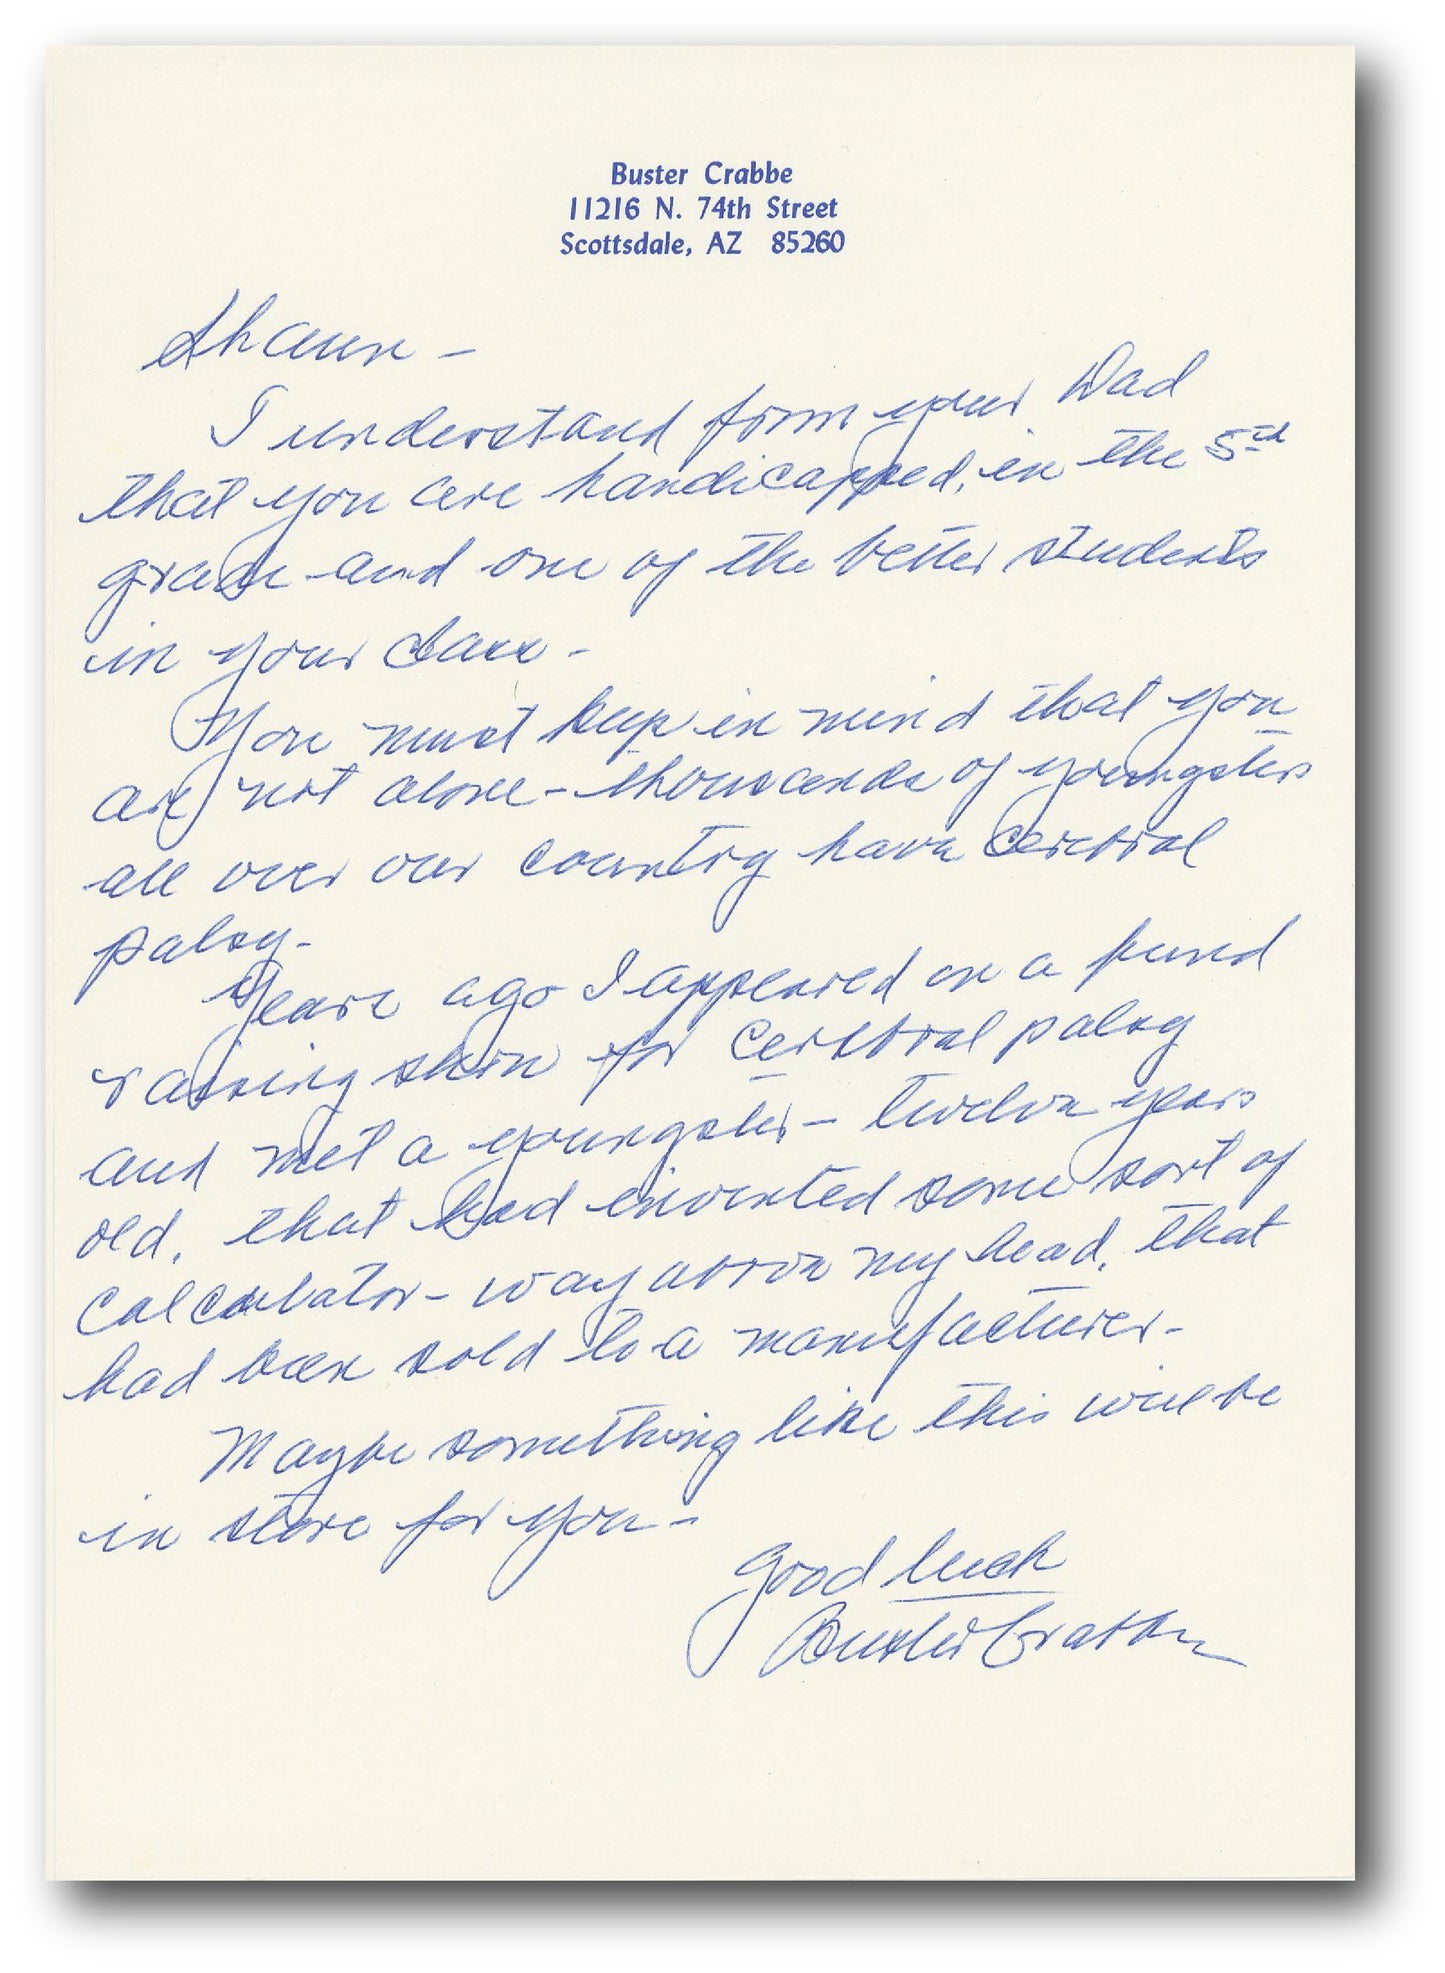 Buster Crabbe
11216 N. 74th Street
Scottsdale, AZ 85260
Shaun -
I understand form your Dad
that you are handicapped, in the 5th
grade - and one of the better students
in your class -
You must keep in mind that you
are not alone - thousands of youngsters
all over our country have cerebral
palsy -
Years ago I appeared on a fund
raising show for cerebral palsy
and met a youngster - twelve years
old, that had invented some sort of
calculator - way above my head, that
had been sold to a manufacturer -
Maybe something like this will be
in store for you -
Good luck
Buster Crabbe